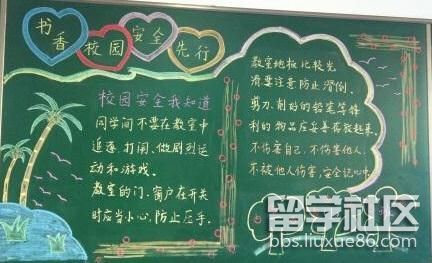 书香校园 安全先行
校园安全我知道
同学间不要在教室中
追逐、打闹、做剧烈运
动和游戏。
教室的门、窗户在开关
时应当小心,防止压手。
教室地板比较光
滑要注意防止滑倒。
剪刀、削好的铅笔等锋
利的物品应妥善存放起来。
不伤害自己,不伤害他人,
不被他人伤害,安全记心中
留学社区
bbs.liuxue86.com